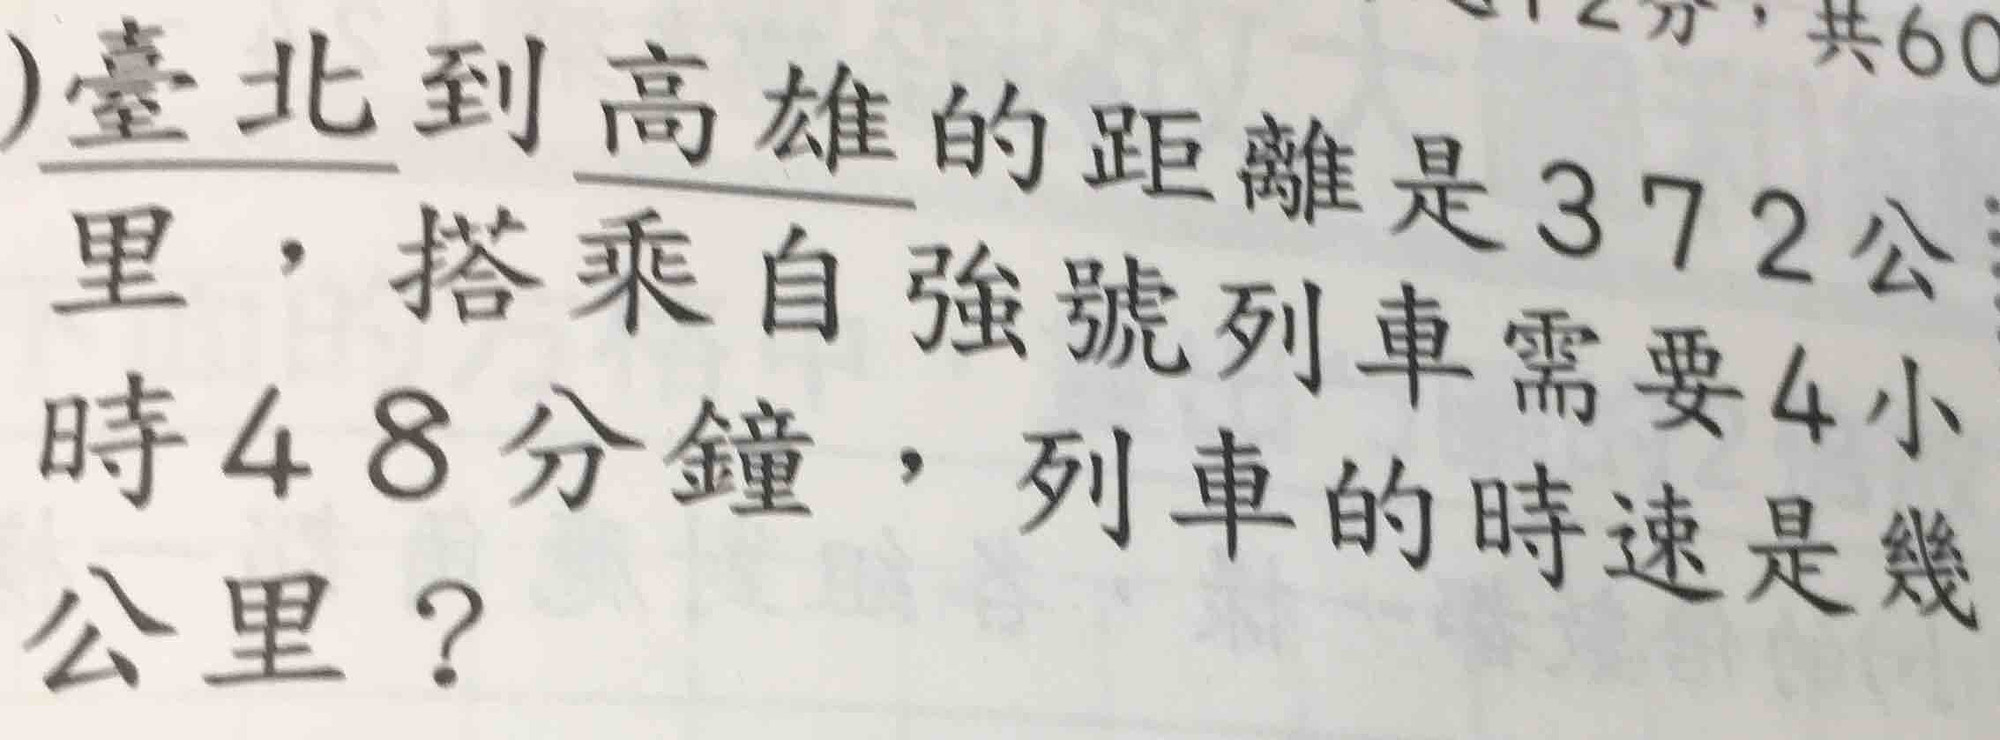 12分，共60
)臺北到高雄的距離是372公
里，搭乘自強號列車需要4小
時48分鐘，列車的時速是幾
公里？